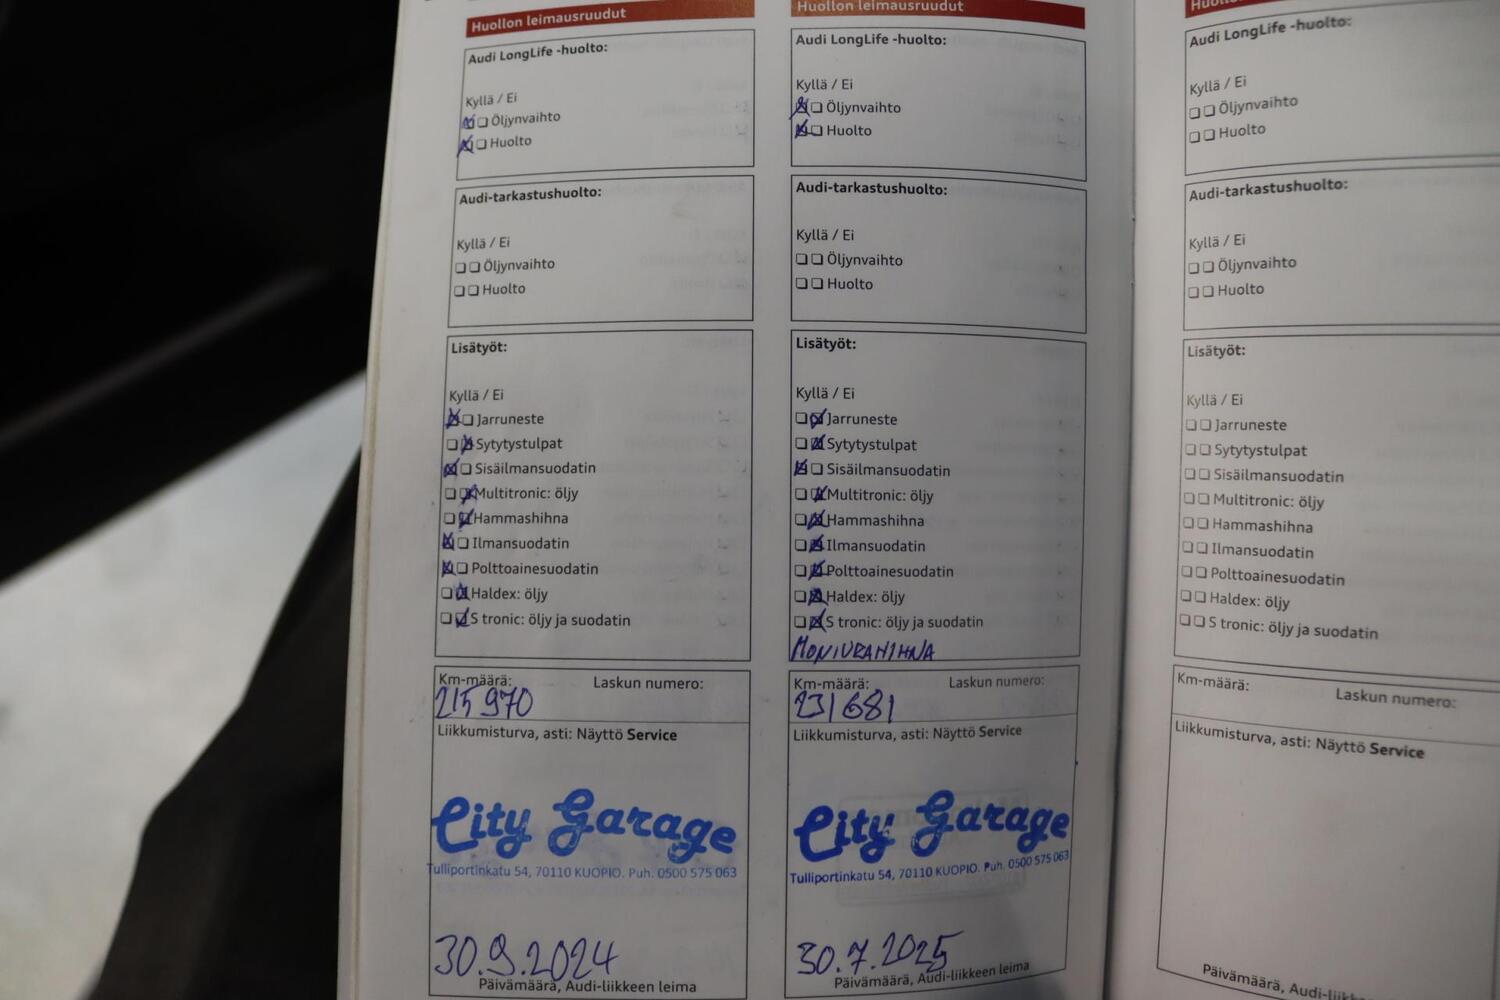 Huollon leimausruudut
Audi LongLife -huolto:
Kyllä / Ei
Öljynvaihto
Huolto
Audi-tarkastushuolto:
Kyllä / Ei
Öljynvaihto
Huolto
Lisätyöt:
Kyllä / Ei
Jarruneste
Sytytystulpat
Sisäilmansuodatin
Multitronic: öljy
Hammashihna
Ilmansuodatin
Polttoainesuodatin
Haldex: öljy
S tronic: öljy ja suodatin
Km-määrä: Laskun numero:
215 970
Liikkumisturva, asti: Näyttö Service
City Garage
Tulliportinkatu 54, 70110 KUOPIO. Puh. 0500 575 063
30.9.2024
Päivämäärä, Audi-liikkeen leima
Huollon leimausruudut
Audi LongLife -huolto:
Kyllä / Ei
Öljynvaihto
Huolto
Audi-tarkastushuolto:
Kyllä / Ei
Öljynvaihto
Huolto
Lisätyöt:
Kyllä / Ei
Jarruneste
Sytytystulpat
Sisäilmansuodatin
Multitronic: öljy
Hammashihna
Ilmansuodatin
Polttoainesuodatin
Haldex: öljy
S tronic: öljy ja suodatin
MONIURAHIHNA
Km-määrä: Laskun numero:
231681
Liikkumisturva, asti: Näyttö Service
City Garage
Tulliportinkatu 54, 70110 KUOPIO. Puh. 0500 575 063
30.7.2025
Päivämäärä, Audi-liikkeen leima
Audi LongLife -huolto:
Kyllä / Ei
Öljynvaihto
Huolto
Audi-tarkastushuolto:
Kyllä / Ei
Öljynvaihto
Huolto
Lisätyöt:
Kyllä / Ei
Jarruneste
Sytytystulpat
Sisäilmansuodatin
Multitronic: öljy
Hammashihna
Ilmansuodatin
Polttoainesuodatin
Haldex: öljy
S tronic: öljy ja suodatin
Km-määrä: Laskun numero:
Liikkumisturva, asti: Näyttö Service
Päivämäärä,